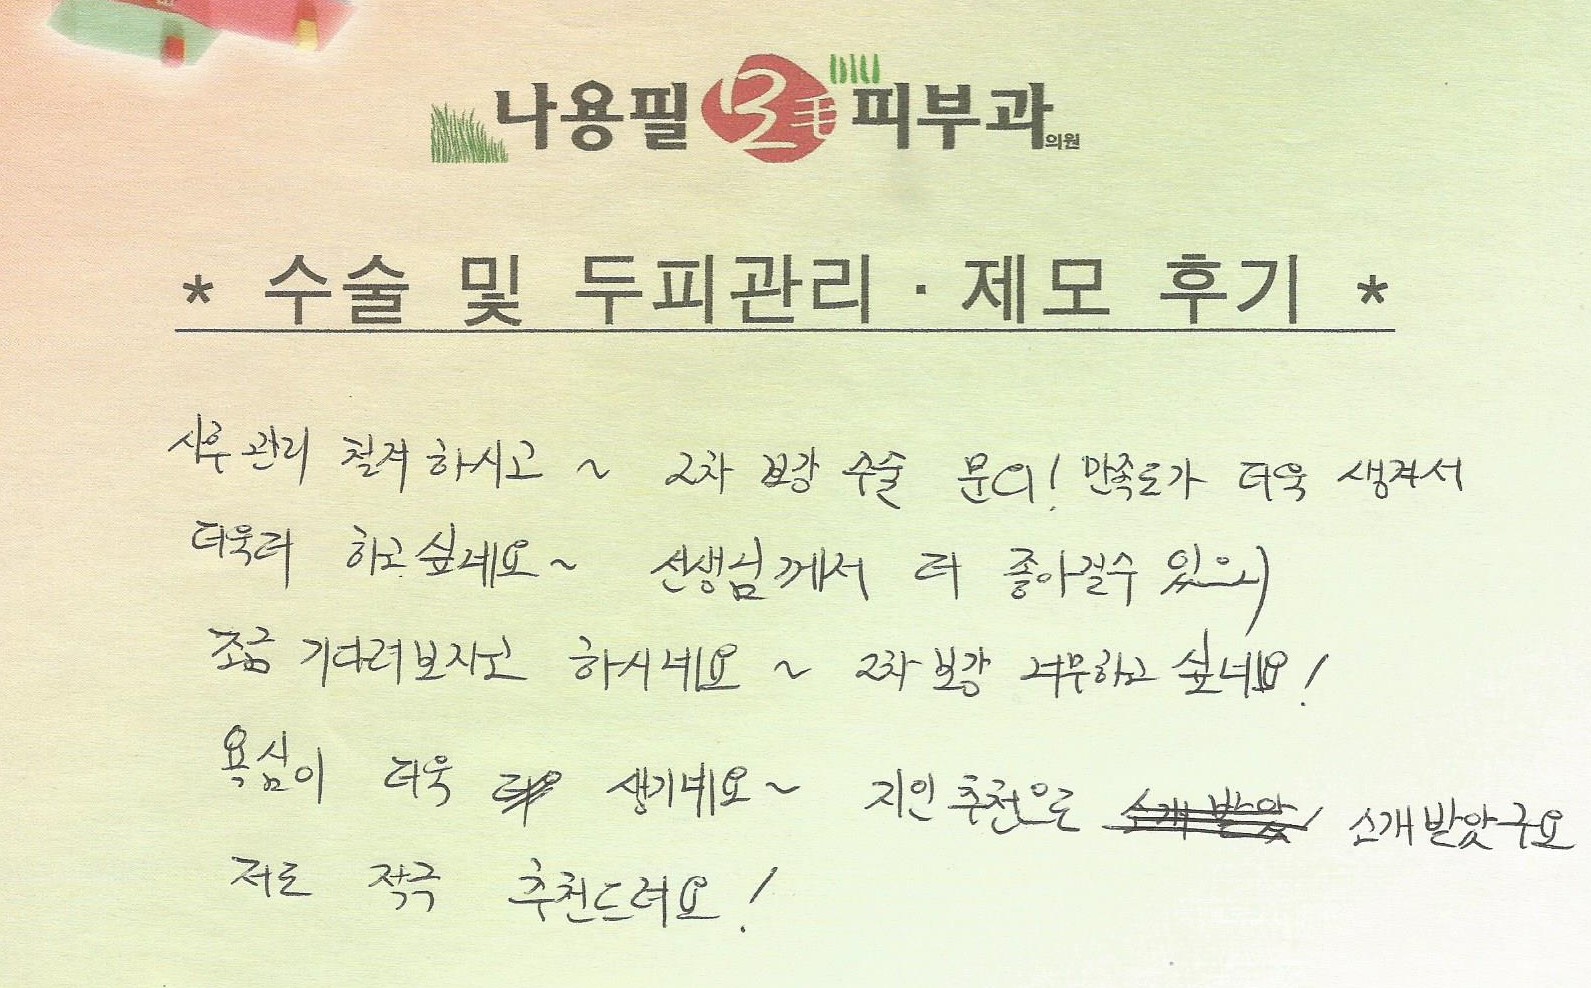 나용필 모毛 피부과의원
* 수술 및 두피관리 · 제모 후기 *
사후관리 철저하시고 ~ 2차 보강 수술 문의! 만족도가 더욱 생겨서
더욱더 하고싶네요~ 선생님께서 더 좋아질수 있으니
조금 기다려보자고 하시네요 ~ 2차 보강 너무하고 싶네요!
욕심이 더욱 생기네요~ 지인 추천으로 소개받았구요
저도 적극 추천드려요!